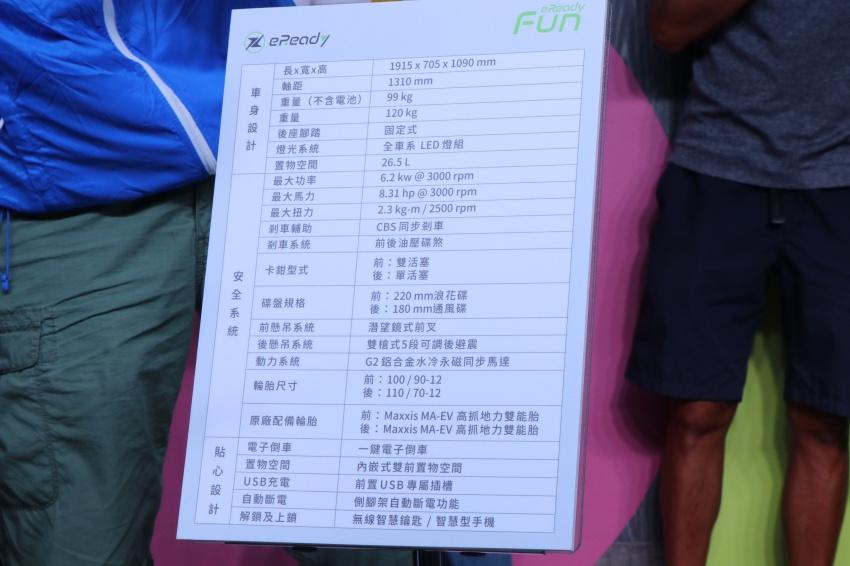 eReady
eReady
Fun
車身設計
長x寬x高 1915 x 705 x 1090 mm
軸距 1310 mm
重量（不含電池） 99 kg
重量 120 kg
後座腳踏 固定式
燈光系統 全車系 LED 燈組
置物空間 26.5 L
安全系統
最大功率 6.2 kw @ 3000 rpm
最大馬力 8.31 hp @ 3000 rpm
最大扭力 2.3 kg-m / 2500 rpm
剎車輔助 CBS 同步剎車
剎車系統 前後油壓碟煞
卡鉗型式 前：雙活塞
後：單活塞
碟盤規格 前：220 mm浪花碟
後：180 mm通風碟
前懸吊系統 潛望鏡式前叉
後懸吊系統 雙槍式5段可調後避震
動力系統 G2 鋁合金水冷永磁同步馬達
輪胎尺寸 前：100 / 90-12
後：110 / 70-12
原廠配備輪胎 前：Maxxis MA-EV 高抓地力雙能胎
後：Maxxis MA-EV 高抓地力雙能胎
貼心設計
電子倒車 一鍵電子倒車
置物空間 內嵌式雙前置物空間
USB充電 前置 USB 專屬插槽
自動斷電 側腳架自動斷電功能
解鎖及上鎖 無線智慧鑰匙 / 智慧型手機